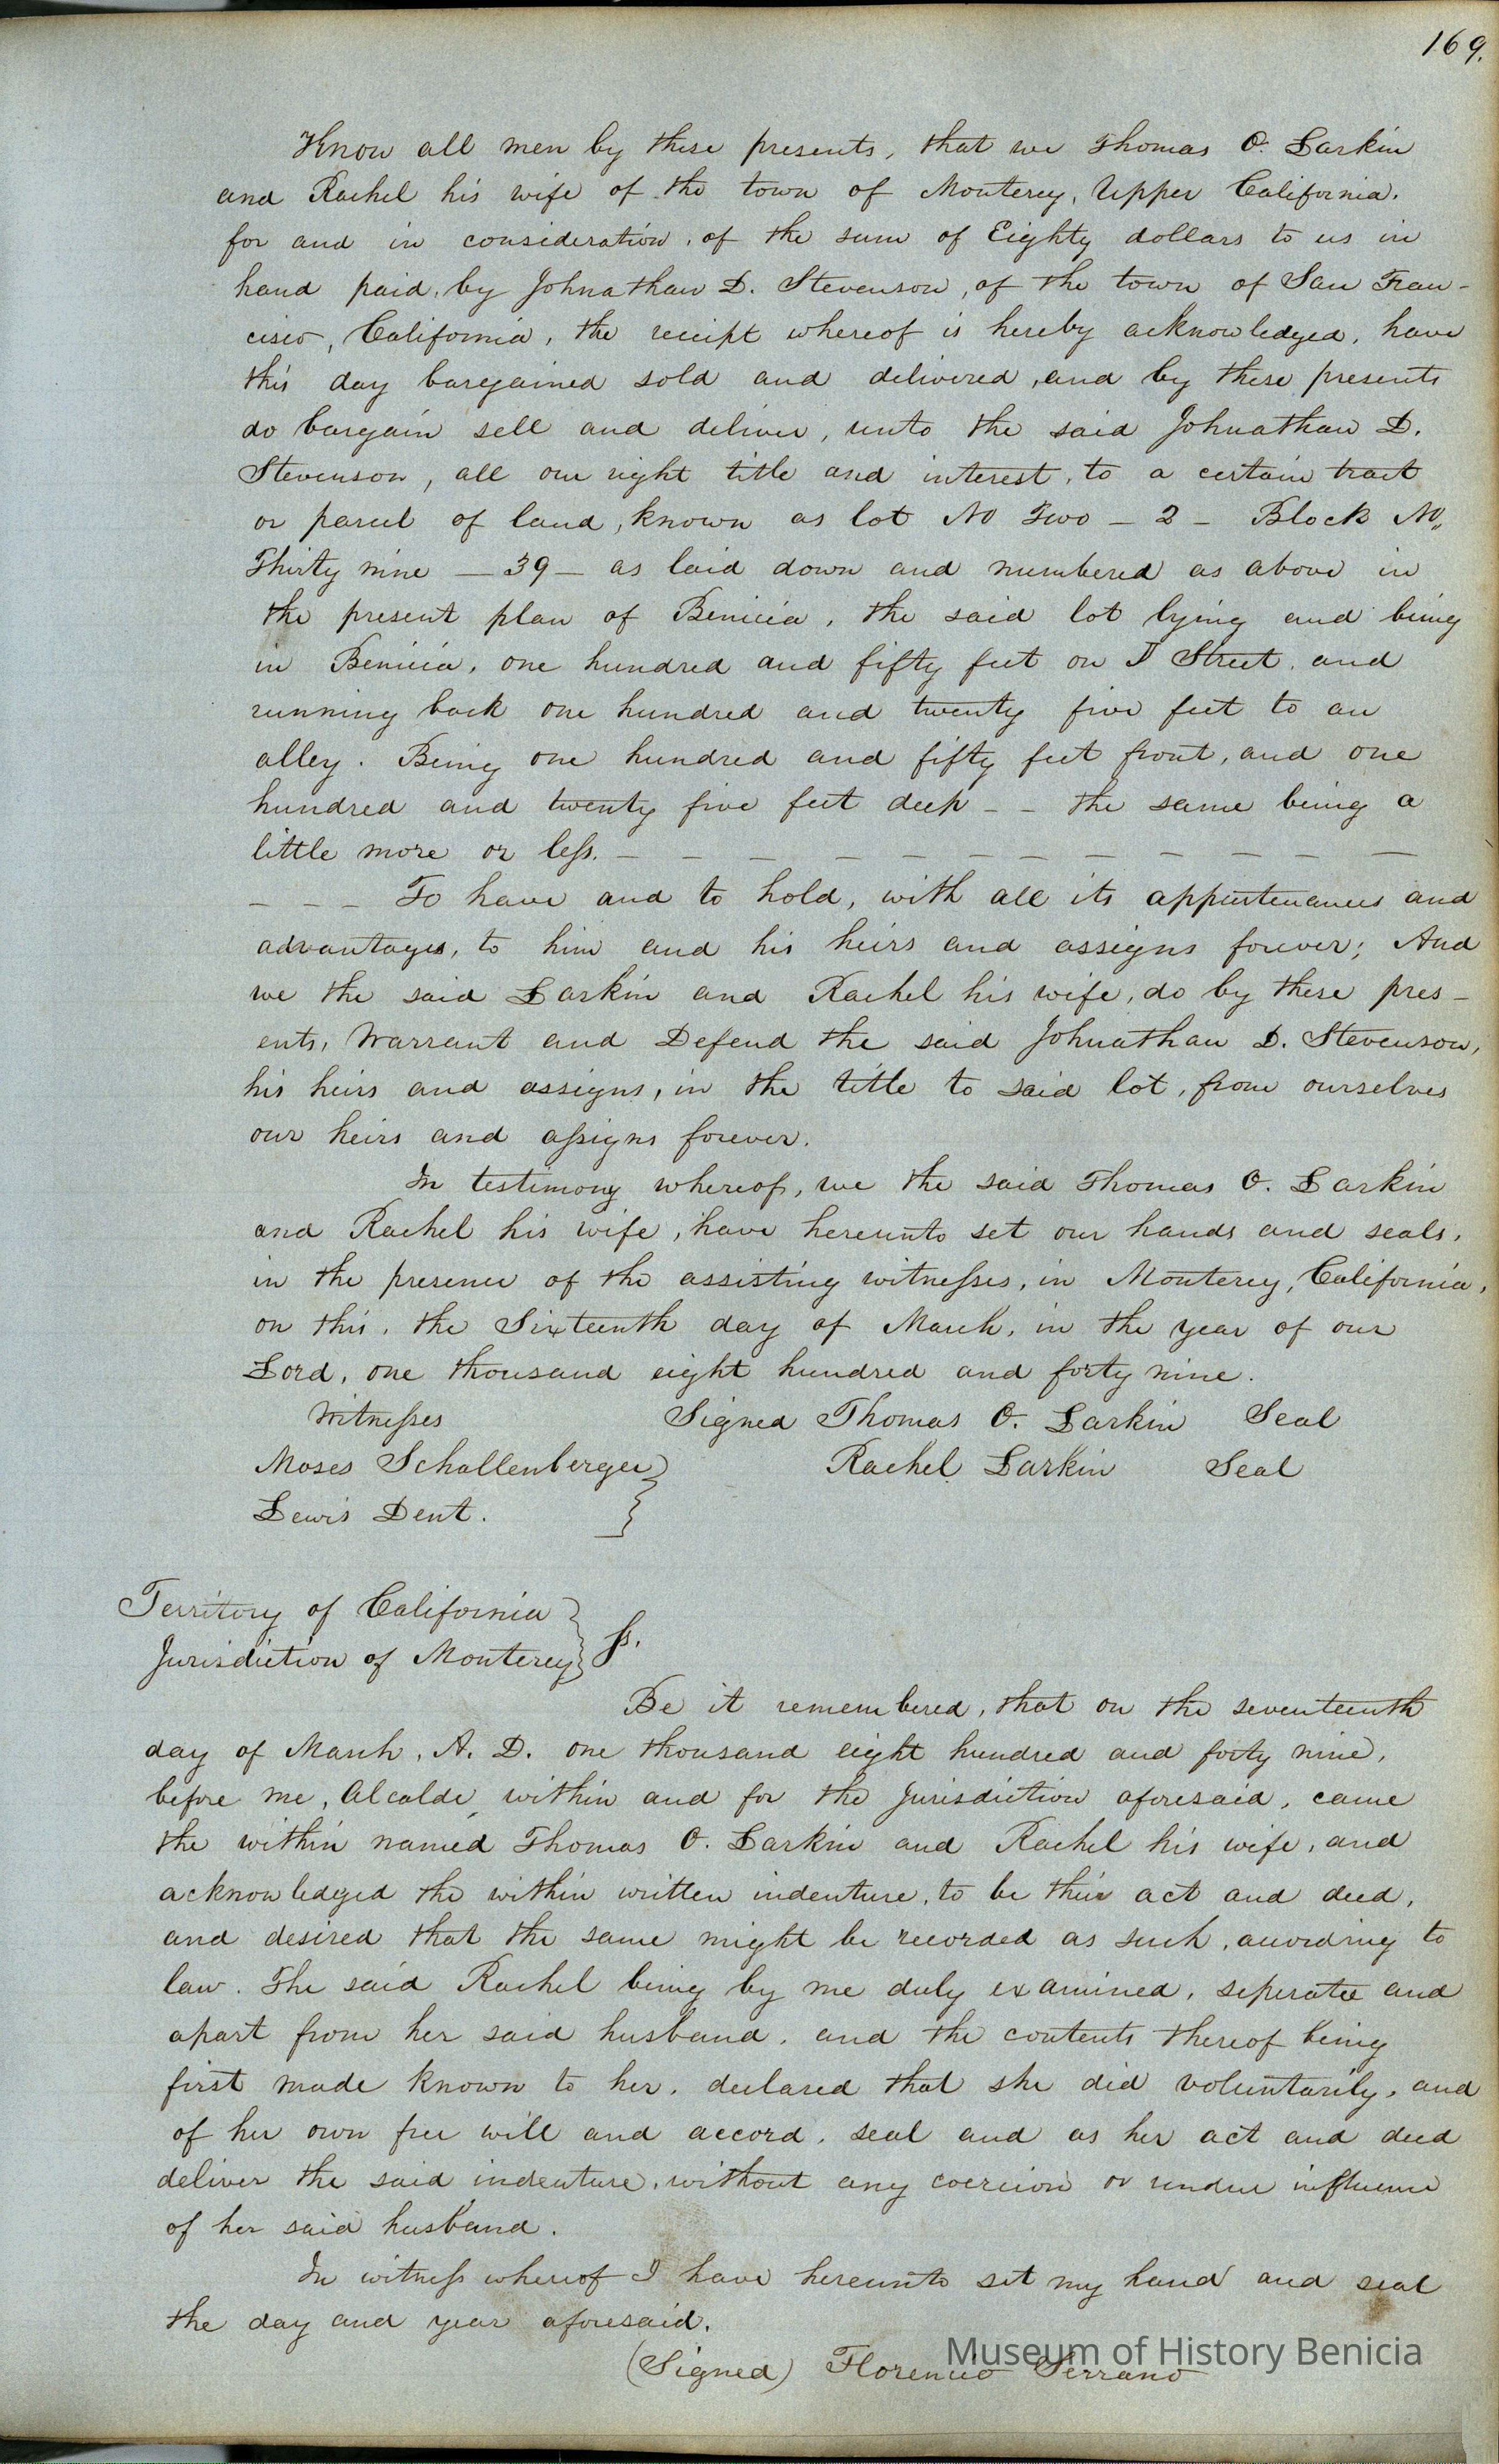 169.
Know all men by these presents, that we Thomas O. Larkin
and Rachel his wife of the town of Monterey, Upper California.
for and in consideration, of the sum of Eighty dollars to us in
hand paid, by Johnathan D. Stevenson, of the town of San Fran-
cisco, California, the receipt whereof is hereby acknowledged, have
this day bargained sold and delivered, and by these presents
do bargain sell and deliver, unto the said Johnathan D.
Stevenson, all our right title and interest, to a certain tract
or parcel of land, known as lot No Two - 2 - Block No,,
Thirty nine - 39 - as laid down and numbered as above in
the present plan of Benicia, the said lot lying and being
in Benicia, one hundred and fifty feet on I Street, and
running back one hundred and twenty five feet to an
alley. Being one hundred and fifty feet front, and one
hundred and twenty five feet deep - - the same being a
little more or less. - - - - - - - - - - - -
- - - To have and to hold, with all its appurtenances and
advantages, to him and his heirs and assigns forever; And
we the said Larkin and Rachel his wife, do by these pres-
ents, Warrant and Defend the said Johnathan D. Stevenson,
his heirs and assigns, in the title to said lot, from ourselves
our heirs and assigns forever.
In testimony whereof, we the said Thomas O. Larkin
and Rachel his wife, have hereunto set our hands and seals,
in the presence of the assisting witnesses, in Monterey, California,
on this, the Sixteenth day of March, in the year of our
Lord, one thousand eight hundred and forty nine.
Witnesses Signed Thomas O. Larkin Seal
Moses Schallenberger } Rachel Larkin Seal
Lewis Dent.
Territory of California }
Jurisdiction of Monterey } ss.
Be it remembered, that on the seventeenth
day of March, A. D. one thousand eight hundred and forty nine,
before me, Alcalde, within and for the Jurisdiction aforesaid, came
the within named Thomas O. Larkin and Rachel his wife, and
acknowledged the within written indenture, to be their act and deed,
and desired that the same might be recorded as such, according to
law. The said Rachel being by me duly examined, seperate and
apart from her said husband, and the contents thereof being
first made known to her, declared that she did voluntarily, and
of her own free will and accord, seal and as her act and deed
deliver the said indenture, without any coercion or undue influence
of her said husband.
In witness whereof I have hereunto set my hand and seal
the day and year aforesaid.
(Signed) Florencio Serrano
Museum of History Benicia